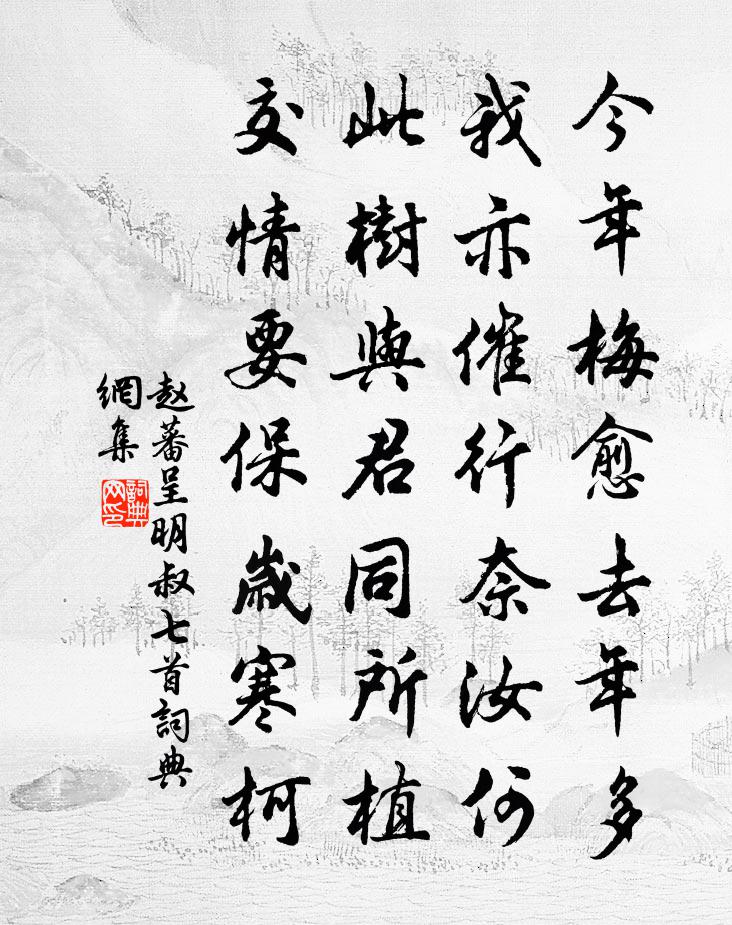 今年梅愈去年多
我亦催行奈汝何
此樹與君同所植
交情要保歲寒柯
赵蕃呈明叔七首詞典
網集
詞典
网印